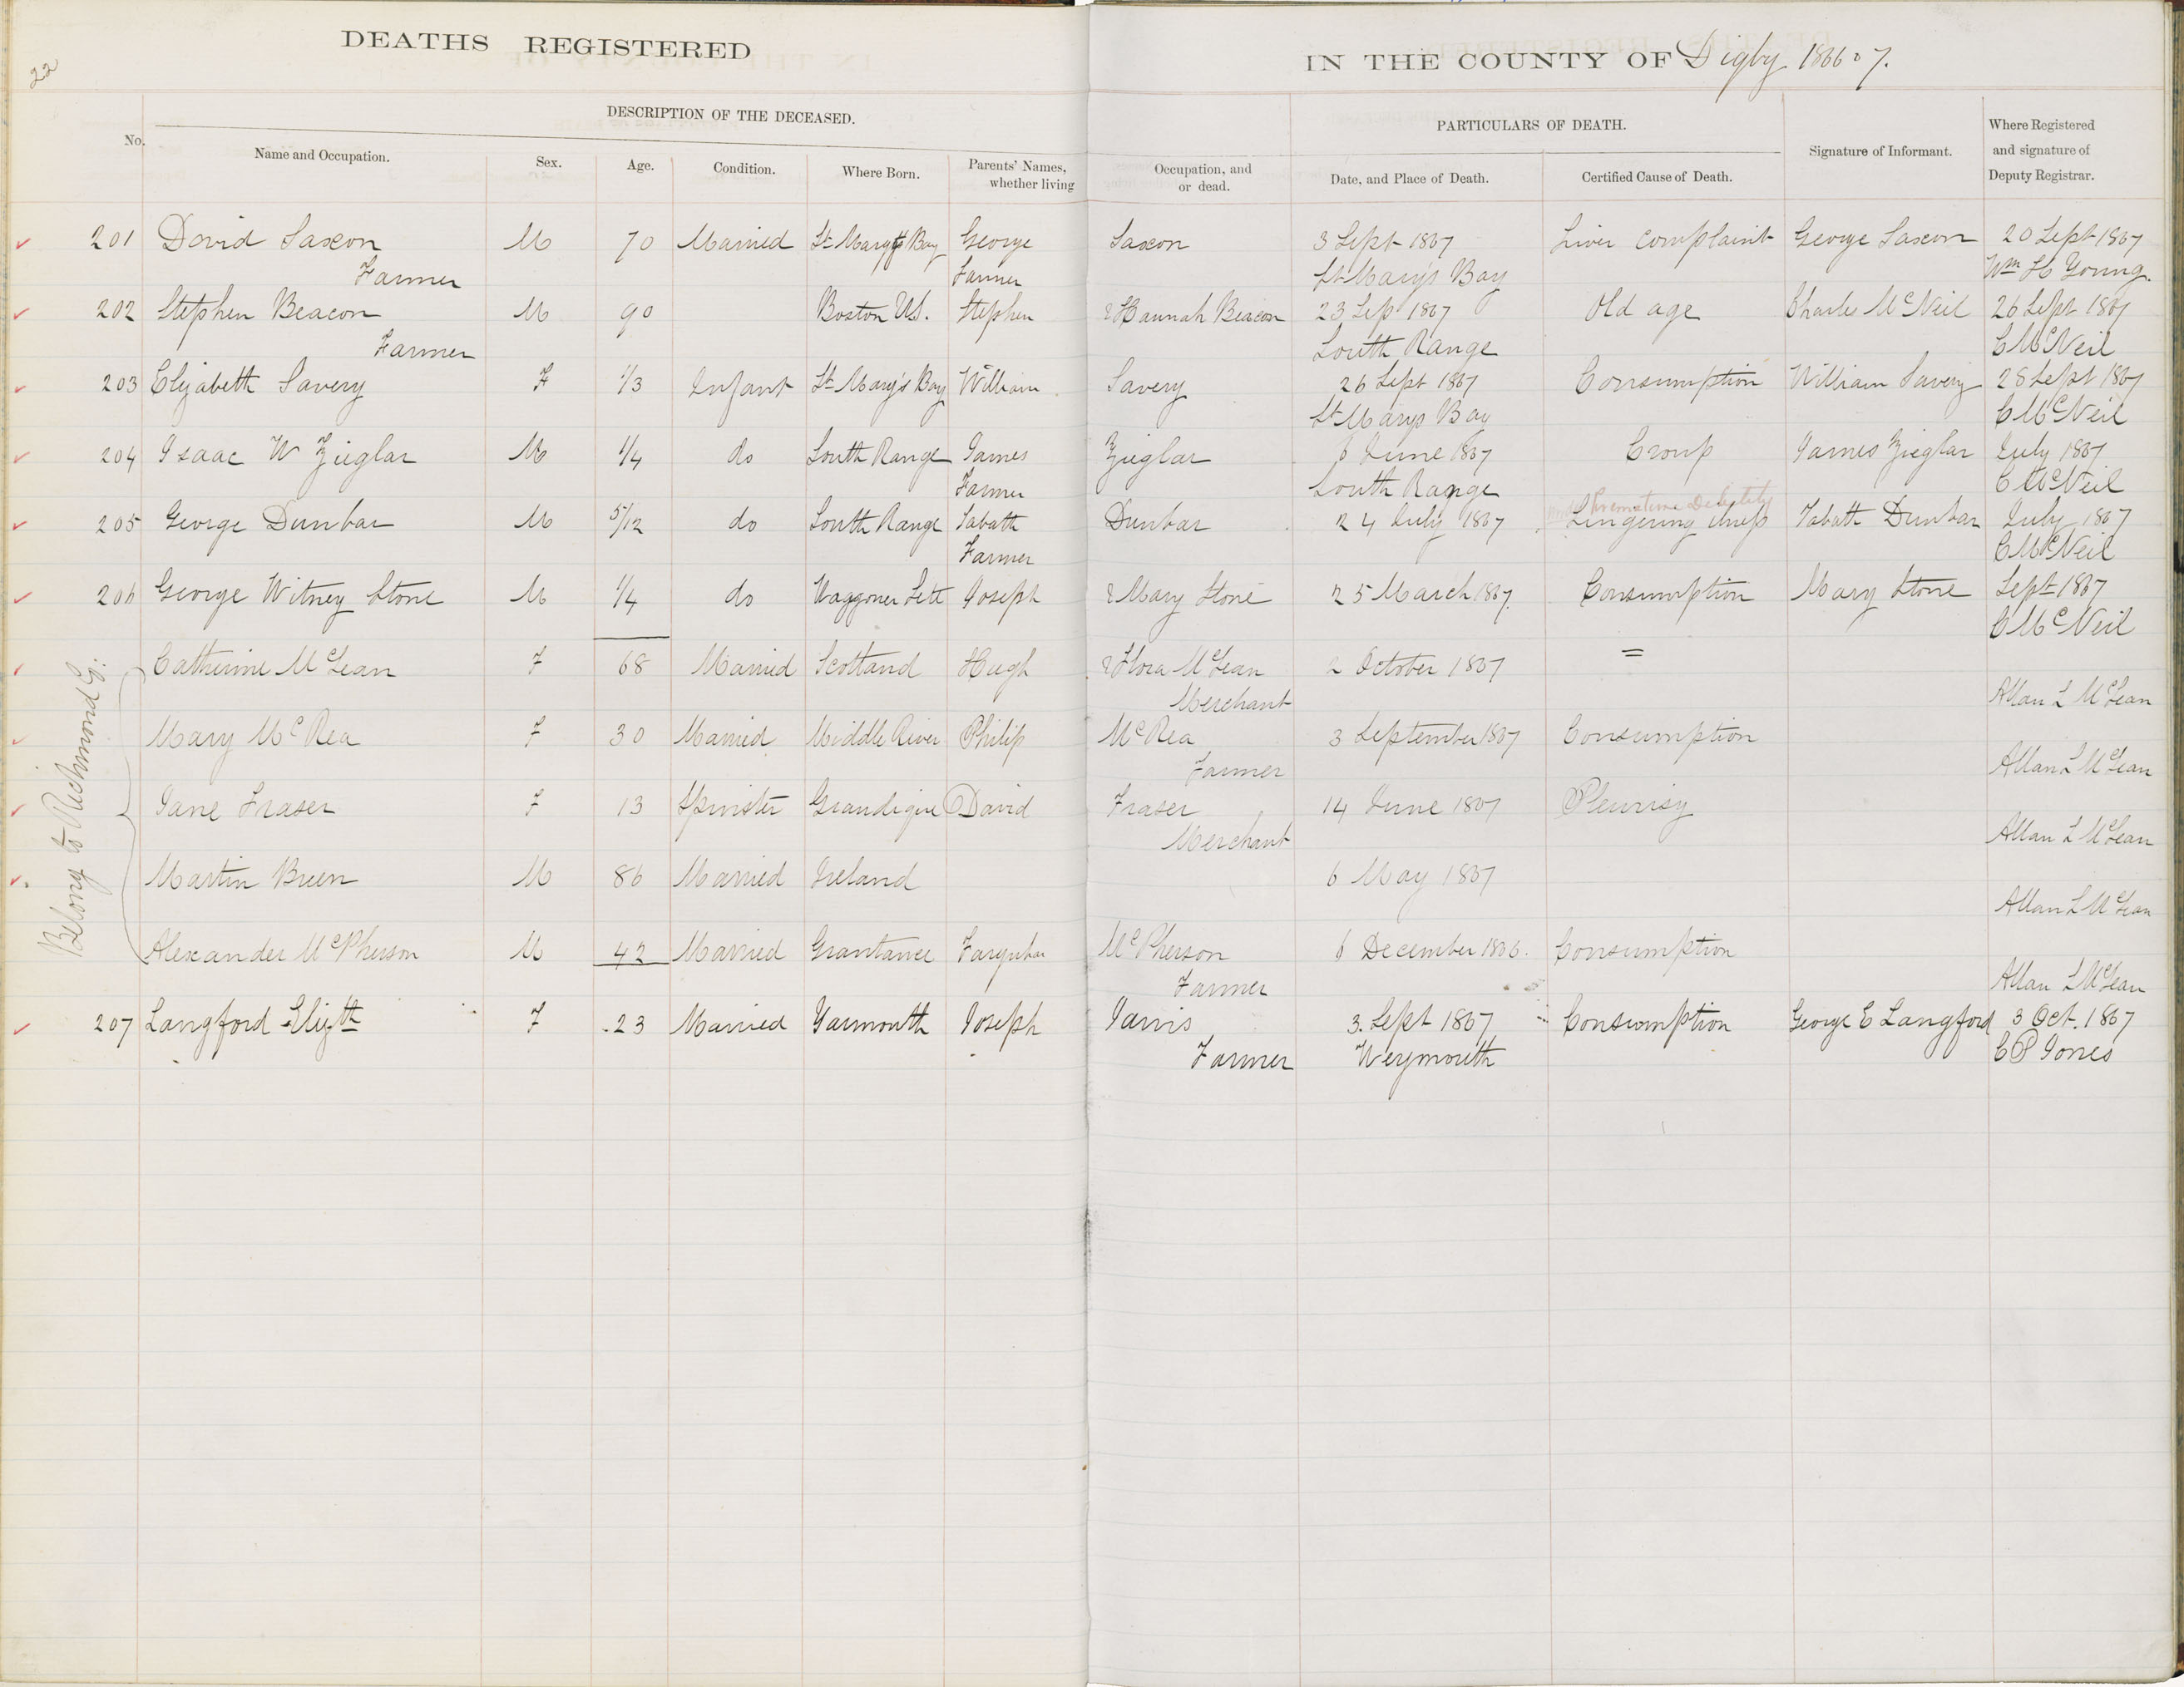 22
DEATHS REGISTERED IN THE COUNTY OF Digby 1866 & 7.
DESCRIPTION OF THE DECEASED. PARTICULARS OF DEATH.
No. Name and Occupation. Sex. Age. Condition. Where Born. Parents' Names, whether living Occupation, and or dead. Date, and Place of Death. Certified Cause of Death. Signature of Informant. Where Registered and signature of Deputy Registrar.
201 David Saxon M 70 Married St Mary's Bay George Saxon 3 Sept 1867 Liver complaint George Saxon 20 Sept 1867
Farmer Farmer St Mary's Bay Wm H Young
202 Stephen Beacon M 90 Boston U.S. Stephen & Hannah Beacon 23 Sep 1867 Old age Charles McNeil 26 Sept 1867
Farmer South Range C McNeil
203 Elizabeth Savery F 1/3 Infant St Mary's Bay William Savery 26 Sept 1867 Consumption William Savery 28 Sept 1867
St Marys Bay C McNeil
204 Isaac W Zieglar M 1/4 do South Range James Zieglar 6 June 1867 Croup James Zieglar July 1867
Farmer South Range C McNeil
Premature Debility
205 George Dunbar M 5/12 do South Range Tabath Dunbar 24 July 1867 Lingering illness Tabath Dunbar July 1867
Farmer C McNeil
206 George Witney Stone M 1/4 do Waggoner Sett Joseph & Mary Stone 25 March 1867. Consumption Mary Stone Sept 1867
C McNeil
Belong to Richmond Co:
Catherine McLean F 68 Married Scotland Hugh & Flora McLean 2 October 1867 =
Merchant Allan L McLean
Mary McRea F 30 Married Middle River Philip McRea 3 September 1867 Consumption
Farmer Allan L McLean
Jane Fraser F 13 Spinster Grandique David Fraser 14 June 1867 Pleurisy
Merchant Allan L McLean
Martin Breen M 86 Married Ireland 6 May 1867
Allan L McLean
Alexander McPherson M 42 Married Grantance Farquhar McPherson 6 December 1866. Consumption
Farmer Allan L McLean
207 Langford Elizth F 23 Married Yarmouth Joseph Jarvis 3. Sept 1867 Consumption George E Langford 3 Oct. 1867
Farmer Weymouth C P Jones